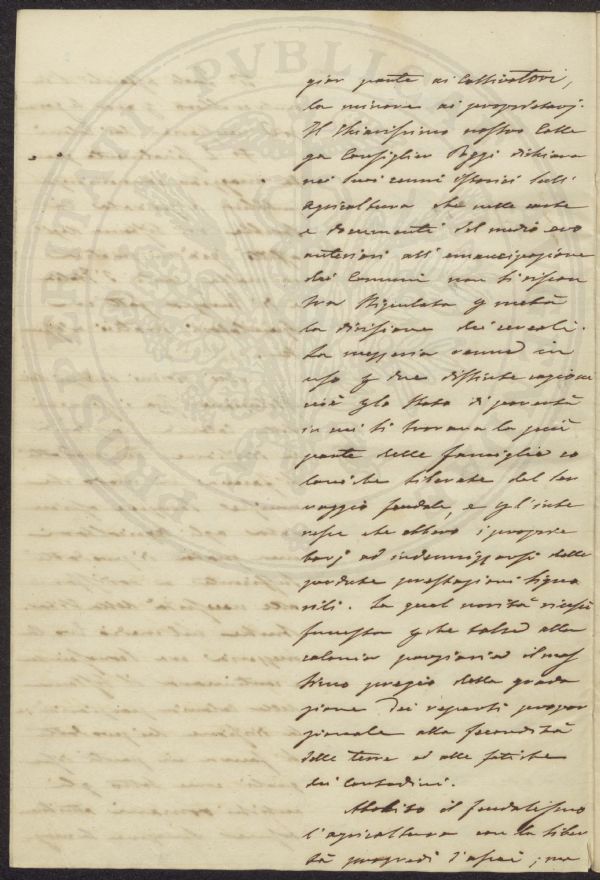 gior parte ai Coltivatori,
la minore ai proprietarj.
Il Chiarissimo nostro Colle
ga Consiglier Poggi dichiara
nei suoi cenni Storici sull'
agricoltura che nelle carte
e documenti del medio evo
anteriori all'emancipazione
dei Comuni non si riscon
tra stipulata p metà
la divisione dei cereali.
La mezzeria venne in
uso p due distinte cagioni
cioè p lo stato di povertà
in cui si trovava la più
parte delle famiglie co
loniche liberate dal ser
vaggio feudale, e p l'inte
resse che ebbero i proprie
tarj ad indennizzarsi delle
perdute prestazioni signo
rili. La qual novità riescì
funesta p che tolse alla
colonia parziaria il mas
simo pregio della grada
zione dei reparti propor
zionale alla fecondità
delle terre ed alle fatiche
dei Contadini.
Abolito il feudalismo
l'agricoltura con la liber
tà progredì d'assai; ma
PROSPERITATI PVBLICAE